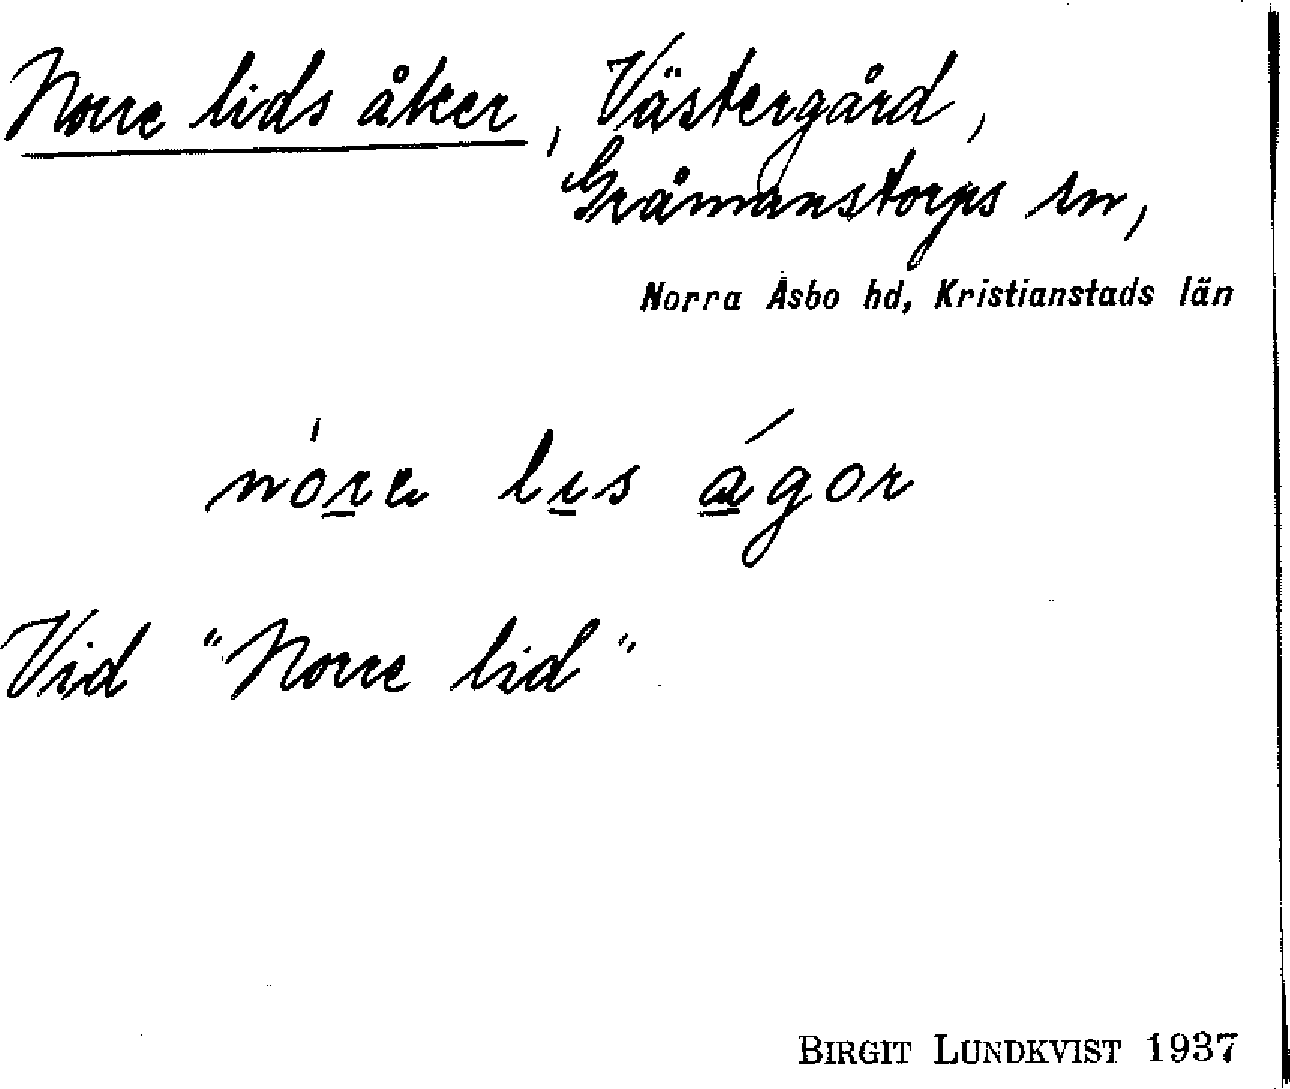 Norre lids åker, Västergård,
Gråmanstorps sn,
Norra Åsbo hd, Kristianstads län
nóra lıs ágor
Vid "Norre lid"
BIRGIT LUNDKVIST 1937